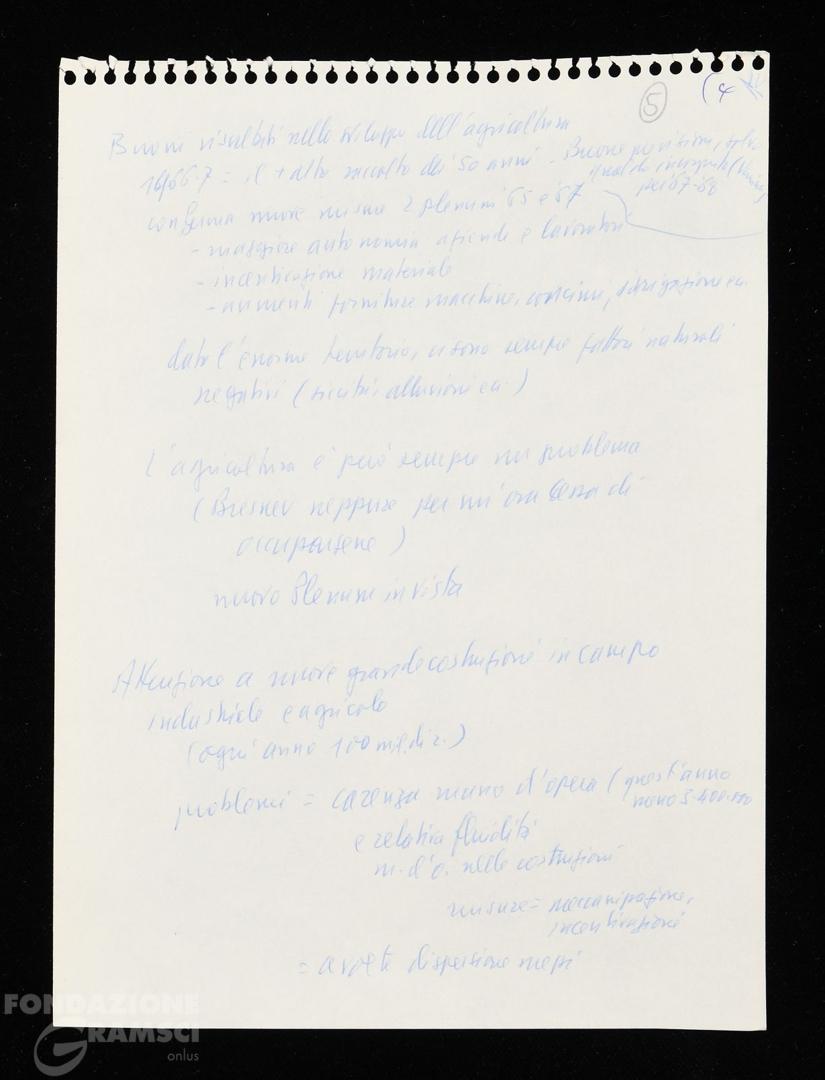 5 (4
Buoni risultati nello sviluppo dell'agricoltura
1966-7 = il + alto raccolto dei 50 anni - Buone previsioni, salvo
qualche incognita
pel 67-68
conferma nuove misure 2 plenum 65 e 67
- maggiore autonomia aziende e lavoratori
- incentivazione materiale
- aumenti forniture macchine, concimi, irrigazione ecc.
dato l'enorme territorio, ci sono sempre fattori naturali
negativi (siccità, alluvioni ecc.)
L'agricoltura è però sempre un problema
(Bresnev neppure per un'ora cessa di
occuparsene)
nuovo Plenum in vista
Attenzione a nuove grandi costruzioni in campo
industriale e agricolo
(ogni anno 100 mil. di r.)
problemi = carenza mano d'opera (quest'anno
meno 3-400.000
e relativa fluidità
m. d'o. nelle costruzioni
misure = meccanizzazione,
incentivazioni
= a volte dispersione mezzi
FONDAZIONE
GRAMSCI
onlus